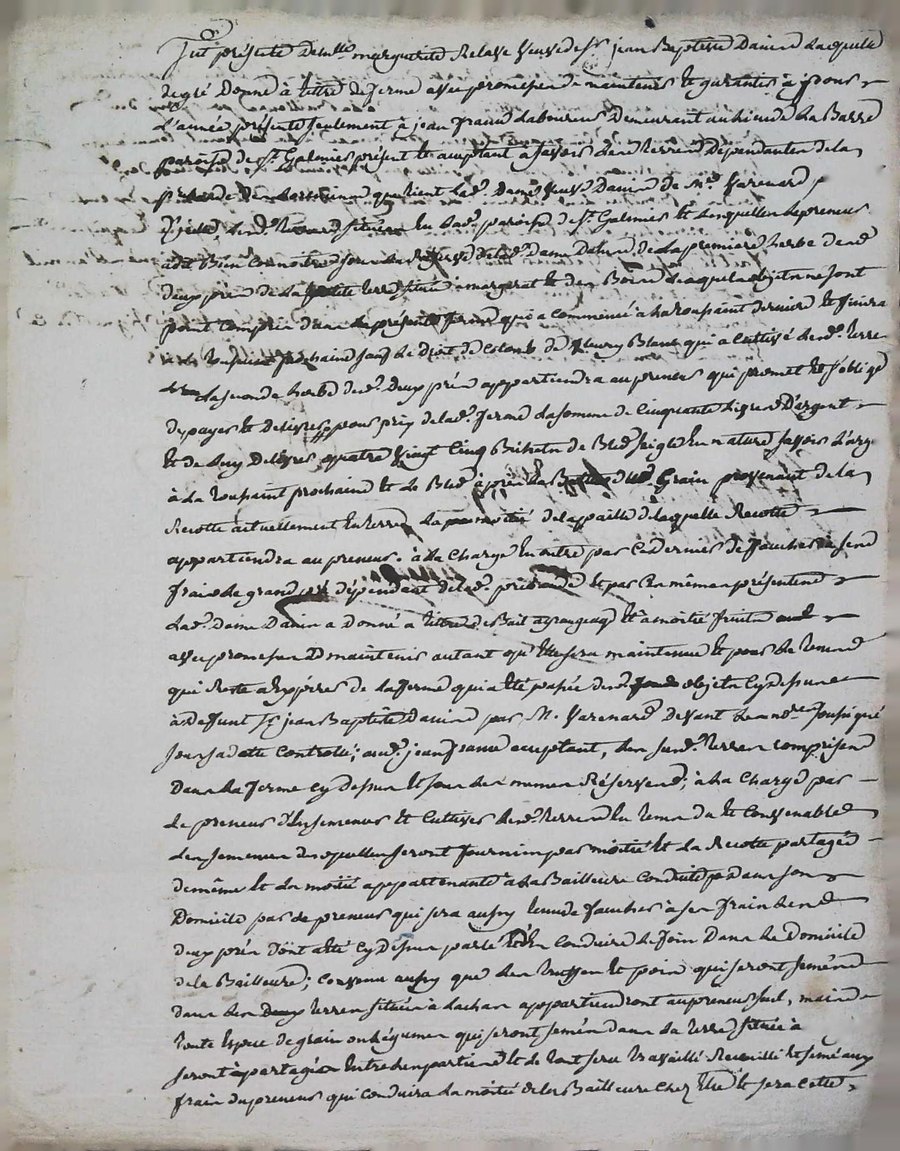 fut présente Demlle marguerite Relave veuve de Sr jean Baptiste Davin Laquelle
de gré Donne à titre de ferme avec promesse de maintenir et garantir à pour
L'année présente seulement à jean Demeurant au lieu de La Barre
paroisse de St Galmier présent et acceptant a savoir les terres Dépendantes de la
que tient Lade Dame veuve Davin de Mr Varenard
situées en Lade paroisse de St Galmier et desquelles Le preneur
a dit Bien connoitre sous La Réserve de lade Dame Davin de La première herbe desd
deux prés de La petite terre située à margerat et des Bois Lesquels objets ne sont
point compris dans La présente ferme qui a commencé à La toussaint dernière et finira
à La toussaint prochaine sauf Le droit de Colomb de fleury Blanc qui a cultivé lesd terres
La seconde herbe desd deux prés appartiendra au preneur qui promet et s'oblige
de payer et délivrer pour prix de lade ferme La somme de Cinquante livres D'argent
et de Luy Délivrer quatre vingt Cinq Bichets de Bled seigle en nature savoir L'argt
à La toussaint prochaine et Le Bled après La Batture dud Grain provenant de la
Recolte actuellement en terre La moitié de la paille de laquelle Recolte
appartiendra au preneur. à La charge en outre par Ce dernier de faucher à ses
frais Le grand pré dépendant de lade et par Ces mêmes présentes
Lade Dame Davin a Donné a titre de Bail à grangeage et à moitié fruits
avec promesse De maintenir autant qu'Elle sera maintenue et pour Le tems
qui Reste a Expirer de La ferme qui a été passée desd objets cy dessus
à défunt Sr jean Baptiste Davin par Mr Varenard devant Le nore soussigné
jour sa date Controllé; aud jean acceptant, Les susd terres comprises
Dans La ferme cy dessus et sous Les mêmes Réserves; à La charge par
Le preneur d'Ensemencer et Cultiver lesd terres En tems dû et Convenable
Les semences desquelles seront fournies par moitié et La Recolte partagée
de même et La moitié appartenante à La Bailleure Conduite dans son
Domicile par Le preneur qui sera aussy tenu de faucher à ses frais Lesd
deux prés Dont a été cy dessus parlé et d'En Conduire Le foin Dans Le Domicile
de la Bailleure; Convenu aussy que Les truffes et pois qui seront semés
dans Les Deux terres situées à Lachas appartiendront au preneur seul, mais
toute Espece de grains ou Légumes qui seront semés dans La terre située à
seront partagés Entre Les parties et Le tout sera travaillé Recueilli et semé aux
frais du preneur qui Conduira La moitié de la Bailleure Chez Elle et sera cette